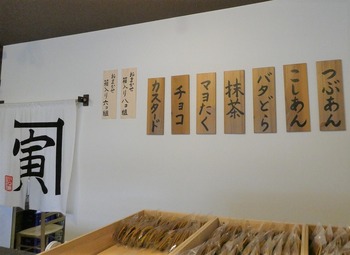 つぶあん
こしあん
バタどら
抹茶
マヨたく
チョコ
カスタード
おまかせ
箱入り八ヶ組
おまかせ
箱入り六ヶ組
寅